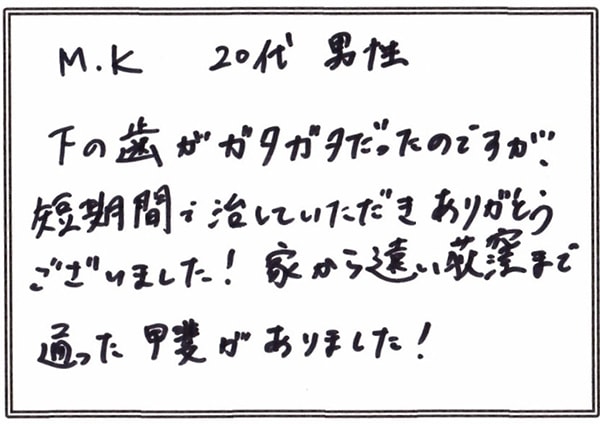 M.K 20代 男性
下の歯がガタガタだったのですが、
短期間で治していただきありがとう
ございました！ 家から遠い荻窪まで
通った甲斐がありました！